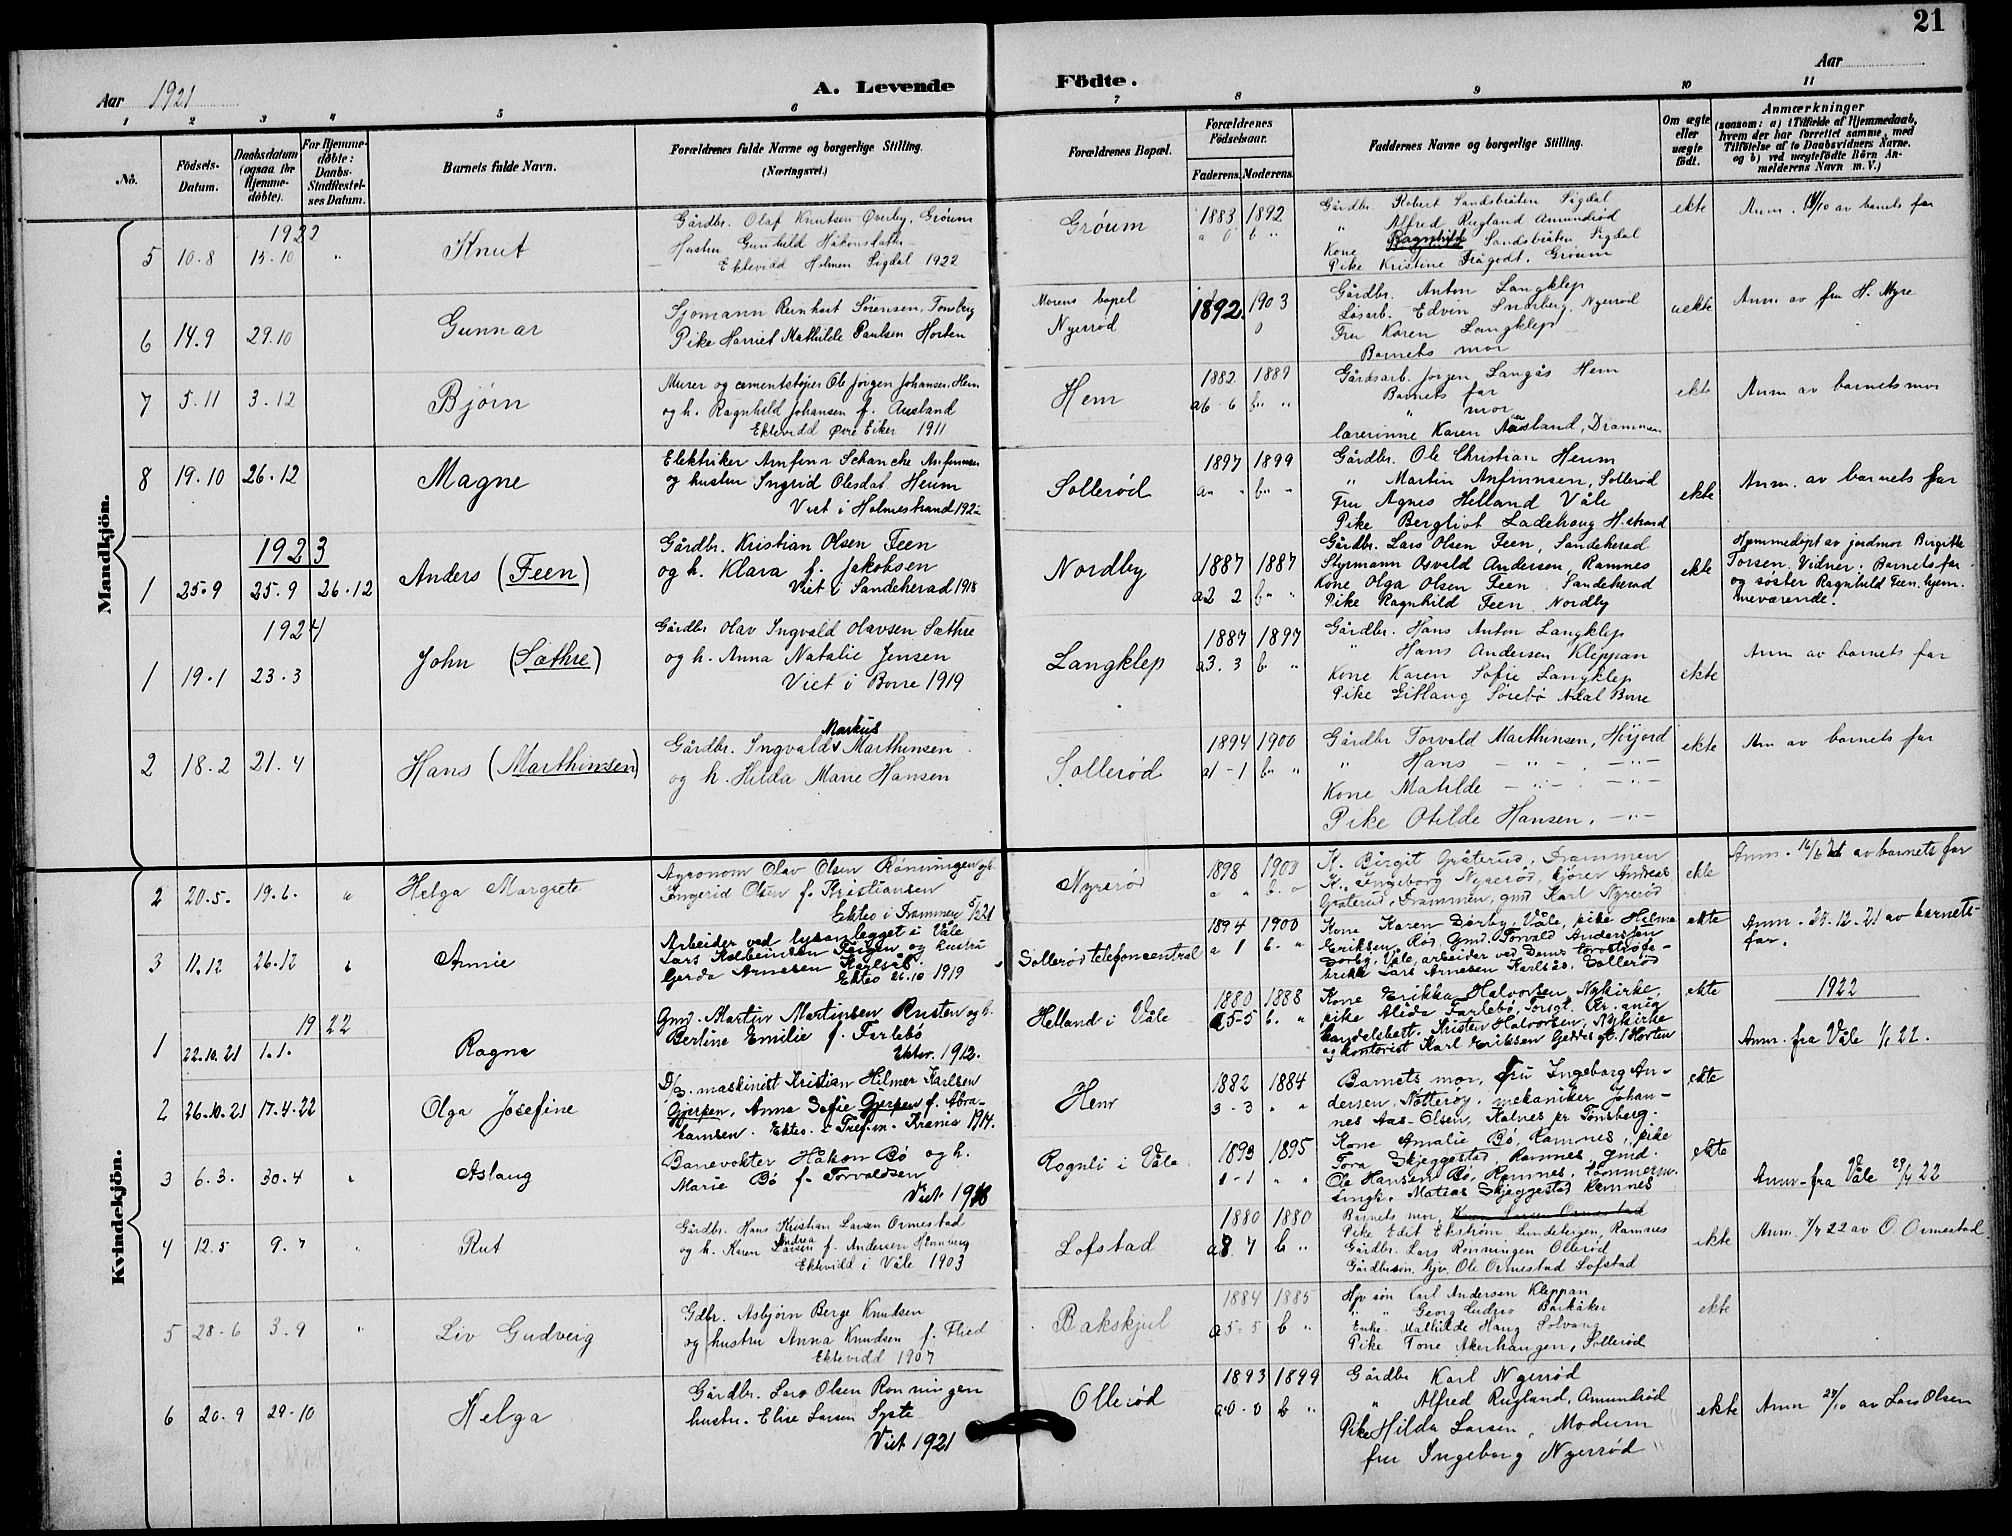 21
Aar 1921
A. Levende Födte.
Aar
1 2 3 4 5 6 7 8 9 10 11
No.
Födsels-Datum.
Daabsdatum (ogsaa for Hjemme-døbte).
For Hjemme-døbte: Daabs-Stadfestel-ses Datum.
Barnets fulde Navn.
Forældrenes fulde Navne og borgerlige Stilling. (Næringsvei.)
Forældrenes Bopæl.
Forældrenes Födselsaar.
Faderens. Moderens.
Faddernes Navne og borgerlige Stilling.
Om ægte eller uægte födt.
Anmærkninger
(saasom: a) i Tilfælde af Hjemmedaab, hvem der har forrettet samme, med Tilföielse af to Daabsvidners Navne, og b) ved uægtefödte Börn Anmelderens Navn m. V.)
Mandkjön.
1922
5 10.8 15.10 " Knut
Gårdbr. Olaf Knutsen Øverby, Gröum
Hustru Gunhild Håkonsdatter
Ektevidd Holmen Sigdal 1922
Gröum
1883 1892
Gårdbr. Robert Sandsbråten Sigdal
" Alfred Rugland Amundrød
Kone Ragnhild Sandsbråten Sigdal
Pike Kristine Trågodt, Groum
ekte
Anm. 14/10 av barnets far
6 14.9 29.10 Gunnar
Sjømann Reinhart Sørensen, Tonsberg
Pike Harriet Mathilde Paulsen Horten
Morens bopel
Nyerrød
1892 1903
Gårdbr. Anton Langklep
Løsarb. Edvin Snarberg, Nyerrød
Fru Karen Langklep
Barnets mor
uekte
Anm. av fru H. Myre
7 5.11 3.12 Bjørn
Murer og cementstøper Ole Jørgen Johansen, Hem
og h. Ragnhild Johansen f. Ausland
Ektevidd Øvre Eiker 1911
Hem
1882 1889
a6-6 b " "
Gårdsarb. Jørgen Langås Hem
Barnets far
" mor
lærerinne Karen Aasland, Drammen
ekte
Anm av barnets mor
8 19.10 26.12 Magne
Elektriker Arnfinn Schanche Anfinnsen
og hustru Ingrid Olesdat Heum
Viet i Holmestrand 192
Sollerød
1897 1899
Gårdbr. Ole Christian Heum
" Martin Anfinnsen, Sollerød
Fru Agnes Helland Våle
Pike Bergliot Ladehaug H.strand
ekte
Anm. av barnets far
1923
1 25.9 25.9 26.12 Anders (Feen)
Gårdbr. Kristian Olsen Feen
og h. Klara f. Jakobsen
Viet i Sandeherad 1918
Nordby
1887 1887
a2 2 b " "
Gårdbr. Lars Olsen Feen, Sandeherad
Styrmann Osvald Andersen, Ramnes
Kone Olga Olsen Feen Sandeherad
Pike Ragnhild Feen, Nordby
ekte
Hjemmedøpt av jordmor Birgitte
Torsen, Vidner: Barnets far
og søster Ragnhild Feen, hjem-
meværende.
1924
1 19.1 23.3 John (Sæthre)
Gårdbr Olav Ingvald Olavsen Sæthre
og h. Anna Natalie Jensen
Viet i Borre 1919
Langklep
1887 1897
a3.3 b "
Gårdbr. Hans Anton Langklep
" Hans Andersen Kleppan
Kone Karen Sofie Langklep
Pike Gitlaug Sørebø Adal Borre
ekte
Anm av barnets far
2 18.2 21.4 Hans (Marthinsen)
Markus
Gårdbr. Ingvald Marthinsen
og h. Hilda Marie Hansen
Sollerød
1894 1900
a1-1 b " "
Gårdbr Torvald Marthinsen, Höijord
" Hans - " - . - " -
Kone Matilde - " - - " -
Pike Otilde Hansen. - " -
ekte
Am av barnets far
Kvindekjön.
2 20.5. 19.6. " Helga Margrete
Agronom Olav Olsen Rønningen og h.
Ingerid Olsen f. Kristiansen
Ektev i Drammen 5/2 21
Nyrerød
1898 1903
K. Birgit Gråterud, Drammen
K. Ingeborg Nyrerød, kjører Andreas
Gråterud, Drammen, gmd Karl Nyrerød
ekte
Anm. 16/6 21 av barnets far
3 11.12 26.12 " Annie
Arbeider ved lysanlegget i Våle
Lars Kolbeinsen Teigen og hustru
Gerda Arnesen Karlsås.
Ektev 26.10 1919
Sollerød telefoncentral
1894 1900
a 1 b. "
Kone Karen Dørby, Våle, pike Hilma
Eriksen Rød, Gmd. Torvald Andersen
Dørby, Våle, arbeider ved Sems torvstrøfa-
brikk Lars Arnesen Karlsås, Sollerød
ekte
Anm. 25.12.21 av barnets
far.
1922
1 22.10.21 1.1. Ragna
Gmd. Martin Martinsen Rusten og h.
Bertine Emilie f. Farlebö
Ektev. 1912.
Helland i Våle
1880 1888
a5-5 b. "
Kone Erikka Halvorsen, Nykirke,
pike Alida Farlebø, Torsgt. Kr.ania
handelsbetj. Kristen Halvorsen, Nykirke
og kontorist Karl Eriksen Geddes gt. 1 Horten
ekte
1922
Anm. fra Våle 1/1 22.
2 26.10.21 17.4.22 Olga Josefine
D/S. maskinist Kristian Hilmer Karlsen
Gjerpen, Anna Sofie Gjerpen f. Abra-
hamsen. Ektev. i Tref.m. Krania 1914.
Hem
1882 1884
3-3 " "
Barnets mor, fru Ingeborg An-
dersen, Nøtterøy, mekaniker Johan-
nes Aas-Olsen, Kalnes pr Tønsberg.
ekte
3 6.3. 30.4 " Aslaug
Banevokter Håkon Bø og h.
Marie Bø f. Torvaldsen
Viet 1918
Rognli i Våle
1893 1895
1-1 " "
Kone Amalie Bø, Ramnes, pike
Tora Skjeggestad, Ramnes, gmd.
Ole Hansen Bø, Ramnes, tømmerm.
Matias Skjeggestad Ramnes
ekte
Anm. fra Våle 29/4 22
4 12.5 9.7 " Rut
Gårdbr. Hans Kristian Larsen Ormestad
Andrea
og h. Karen Larsen f. Andersen Hånnberg
Ektevidd i Våle 1903
Lofstad
1880 1880
a8 7 b "
Barnets mor,
Pike Edit Ekstrøm, Lundeteigen, Ramnes
Gårdbr. Lars Rønningen Ollerød
Gårdbrsøn hjv. Ole Ormestad Lofstad
ekte
Anm. 7/7 22 av O. Ormestad
5 28-6 3.9 " Liv Gudveig
Gdbr. Asbjørn Berge Knudsen
og hustru Anna Knudsen f. Flied
Ektevidd 1907
Bakskjul
1884 1885
a5-5 b "
Hjv søn Carl Andersen Kleppan
" " Georg Ludvo Barkåker
Enke Mathilde Haug Solvang
Pike Tone Akerhaugen, Sollerød
ekte
6 20.9 29-10 Helga
Gårdbr. Lars Olsen Ronningen
hustr. Elise Larsen Syste
Viet 1921
Ollerød
1893 1899
a0-0 b "
Gårdbr Karl Nyerrød
" Alfred Rugland, Amundrød
Pike Hilda Larsen, Modum
fru Ingeborg Nyerrød
ekte
Anm 28/10 av Lars Olsen